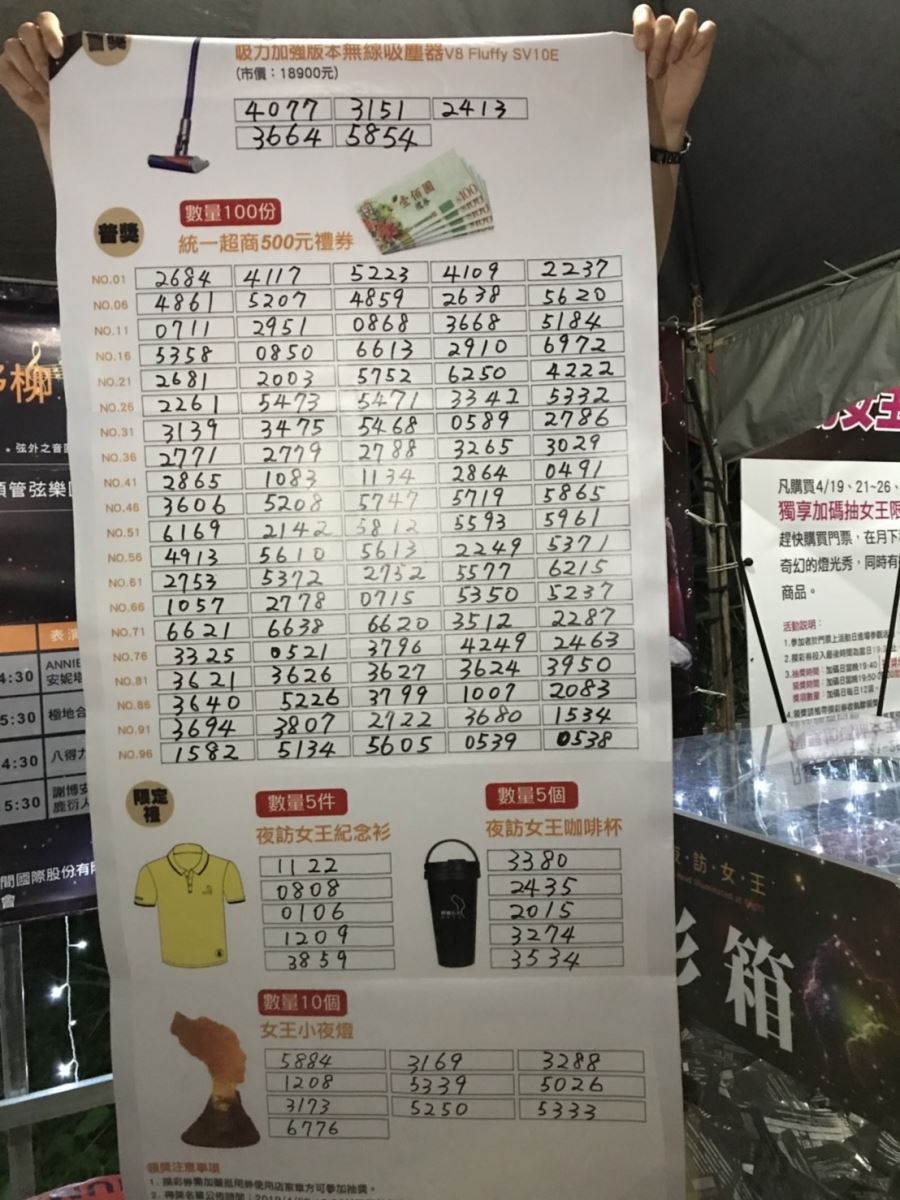 吸力加強版本無線吸塵器V8 Fluffy SV10E
(市價：18900元)
4077 3151 2413
3664 5854
數量100份
普獎
統一超商500元禮券
壹佰圓
禮券
$100
NO.01 2684 4117 5223 4109 2237
NO.06 4861 5207 4859 2638 5620
NO.11 0711 2951 0868 3668 5184
NO.16 5358 0850 6613 2910 6972
NO.21 2681 2003 5752 6250 4222
NO.26 2261 5473 5471 3342 5332
NO.31 3139 3475 5468 0589 2786
NO.36 2771 2779 2788 3265 3029
NO.41 2865 1083 1134 2864 0491
NO.46 3606 5208 5747 5719 5865
NO.51 6169 2142 5812 5593 5961
NO.56 4913 5610 5613 2249 5371
NO.61 2753 5372 2752 5577 6215
NO.66 1057 2778 0715 5350 5237
NO.71 6621 6638 6620 3512 2287
NO.76 3325 0521 3796 4249 2463
NO.81 3621 3626 3627 3624 3950
NO.86 3640 5226 3799 1007 2083
NO.91 3694 3807 2722 3680 1534
NO.96 1582 5134 5605 0539 0538
限定禮
數量5件
夜訪女王紀念衫
1122
0808
0106
1209
3859
數量5個
夜訪女王咖啡杯
3380
2435
2015
3274
3534
數量10個
女王小夜燈
5884 3169 3288
1208 5339 5026
3173 5250 5333
6776
領獎注意事項
1. 摸彩券需加蓋抵用券使用店家章方可參加抽獎。
柳
弦外之音
管弦樂
表演
4:30 ANNIE
5:30 極地合
4:30 八得力
5:30 謝博安
鹿衍人
間國際股份有
會
女王
凡購買4/19、21~26、
獨享加碼抽女王限
趕快購買門票，在月下
奇幻的燈光秀，同時有
商品。
活動說明：
訪·女·王
彩箱